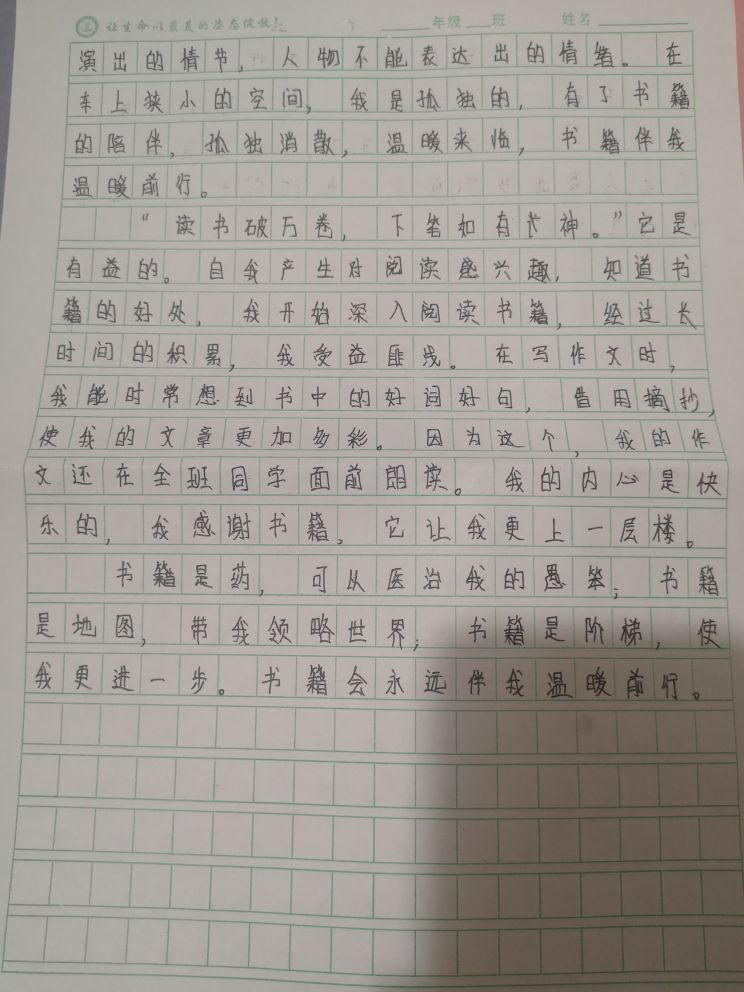 让生命以最美的姿态绽放!
年级 班 姓名
演出的情节，人物不能表达出的情绪。在
车上狭小的空间，我是孤独的，有了书籍
的陪伴，孤独消散，温暖来临，书籍伴我
温暖前行。
“读书破万卷，下笔如有神。”它是
有益的。自我产生对阅读感兴趣，知道书
籍的好处，我开始深入阅读书籍，经过长
时间的积累，我受益匪浅。在写作文时，
我能时常想到书中的好词好句，借用摘抄，
使我的文章更加多彩。因为这个，我的作
文还在全班同学面前朗读。我的内心是快
乐的，我感谢书籍，它让我更上一层楼。
书籍是药，可以医治我的愚笨；书籍
是地图，带我领略世界；书籍是阶梯，使
我更进一步。书籍会永远伴我温暖前行。